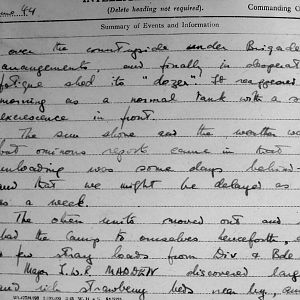 une 44
INTELL
(Delete heading not required).
Commanding O
Summary of Events and Information
over the countryside under Brigade
arrangements, and finally in desperat
fatigue shed its "dozer". It reappeared
morning as a normal tank with a s
excrescence in front.
The sun shone and the weather wa
but ominous reports came in that
unloading was some days behind
and that we might be delayed as
as a week.
The other units moved out and
had the camp to ourselves henceforth,
a few stray loads from Div & Bde
Major I.W.R. MADDEN discovered large
and ripe strawberry beds near by, an